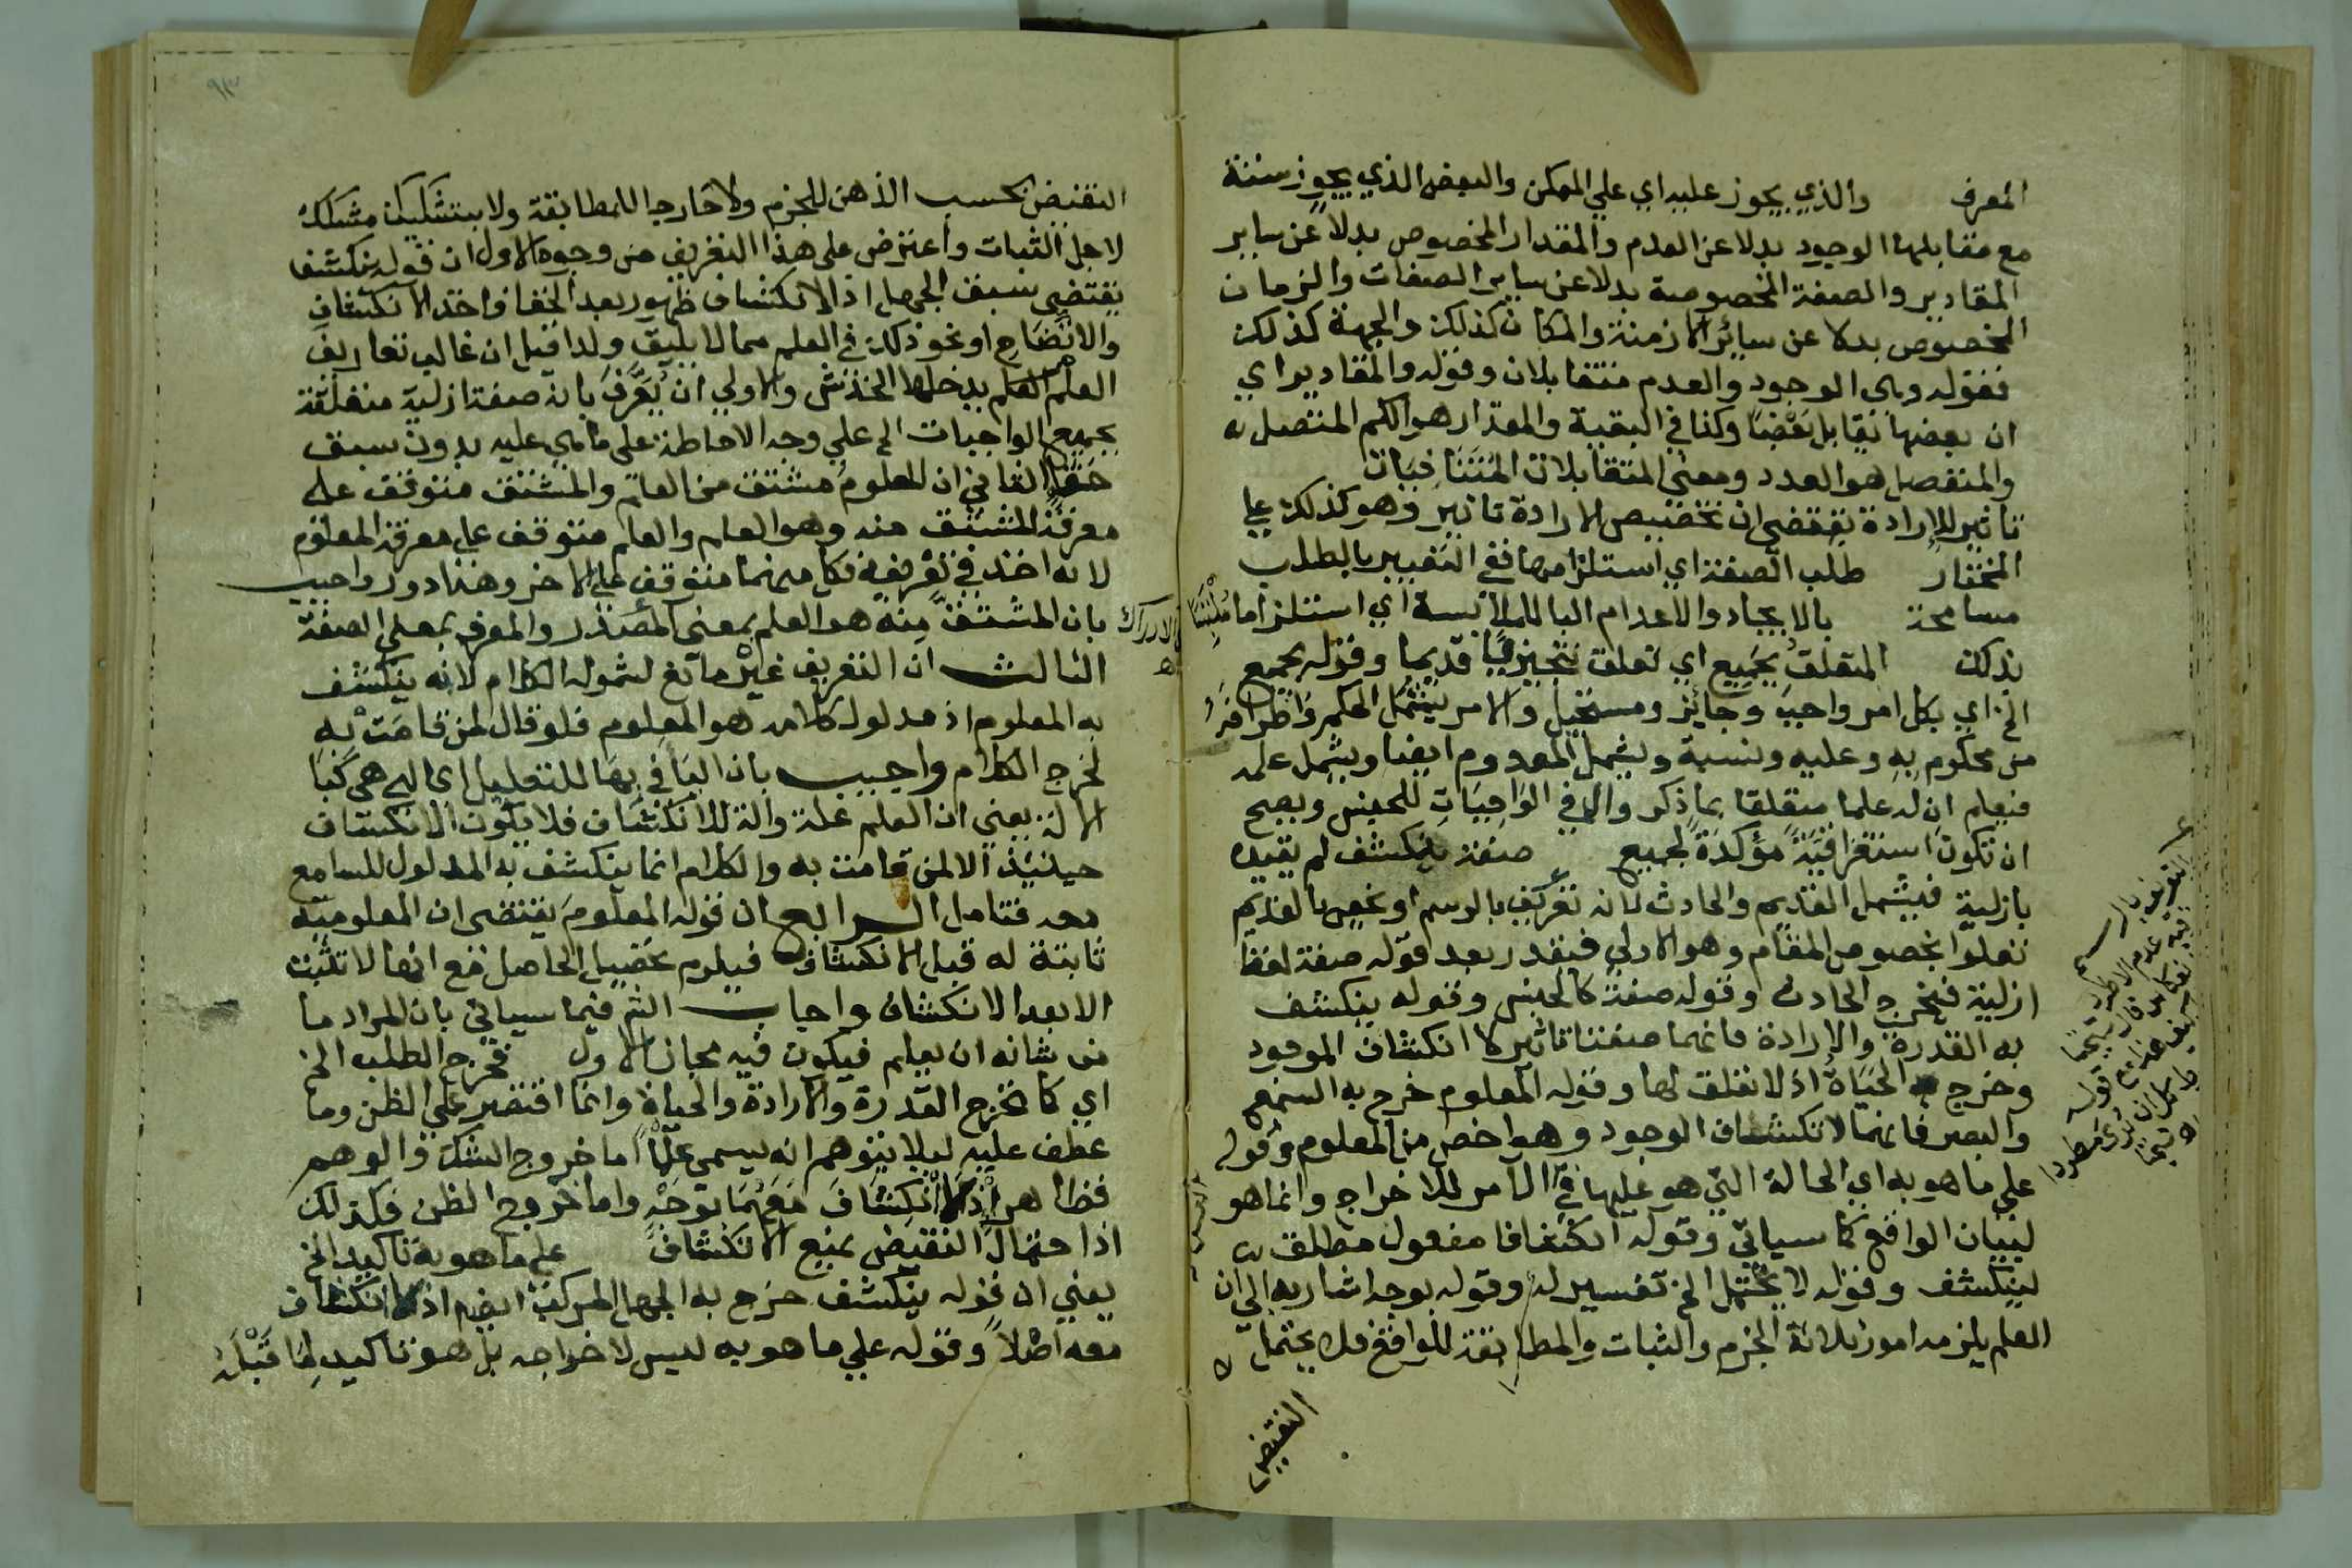 المعرف والذي يجوز عليه اي علي الممكن والبعض الذي يجوز ستة
مع مقابلها الوجود بدلا عن العدم والمقدار المخصوص بدلا عن ساير
المقادير والصفة المخصوصة بدلا عن ساير الصفات والزمان
المخصوص بدلا عن سائر الازمنة والمكان كذلك والجهة كذلك
فقوله وهي الوجود والعدم متقابلان وقوله والمقادير اي
ان بعضها تقابل بعضا وكذا في البقية والمقدار هو الكم المتصل
والمنفصل هو العدد ومعني المتقابلات المتنافيات
تاثير للارادة يقتضي ان تخصيص الارادة تاثير وهو كذلك علي
المختار طلب الصفة اي استلزامها ففي التعبير بالطلب
مسامحة بالايجاد والاعدام البا للملابسة اي استلزاما ملتبسا
بذلك المتعلق بجميع اي تعلق تنجيزيا قديما وقوله بجميع
الخ اي بكل امر واجب وجائز ومستحيل والامر يشمل الحكم واطرافه
من محكوم به وعليه ونسبة ويشمل المعدوم ايضا ويشمل علمه
فيعلم ان له علما متعلقا بما ذكر وال في الواجبات للجنس ويصح
ان تكون استغراقية مؤكدة لجميع صفة ينكشف لم يقيد
بازلية فيشمل القديم والحادث لانه تعريف بالرسم او نخص بالقديم
نعلوا بخصوص المقام وهو الاولي فيقدر بعد قوله صفة لفظ
ازلية فيخرج الحادث وقوله صفة كالجنس وقوله ينكشف
به القدرة والارادة فانهما صفتا تاثير لا انكشاف الموجود
وخرج الحياة اذ لا تعلق لها وقوله المعلوم خرج به السمع
والبصر فانهما لانكشاف الوجود وهو اخص من المعلوم وقوله
علي ما هو به اي الحالة التي هو عليها في الامر للاخراج وانما هو
لبيان الواقع كما سياتي وقوله انكشافا مفعول مطلق
لينكشف وقوله لا يحتمل الخ تفسير له وقوله بوجه اشار به الي ان
العلم يلزمه امور ثلاثة الجزم والثبات والمطابقة للواقع فلا يحتمل
النقيض
النقيض بحسب الذهن للجزم ولا خارجا للمطابقة ولا بتشكيك مشكك
لاجل الثبات واعترض علي هذا التعريف من وجوه الاول ان قوله ينكشف
يقتضي سبق الجهل اذ الانكشاف ظهور بعد الخفا فاخذ الانكشاف
والاتضاح او نحو ذلك في العلم مما لا يليق ولذا قيل ان غالب تعاريف
العلم يدخلها الخدش والاولي ان يعرف بانه صفة ازلية متعلقة
بجميع الواجبات الخ علي وجه الاحاطة علي ما هي عليه بدون سبق
خفا الثاني ان المعلوم مشتق من العلم والمشتق متوقف علي
معرفة المشتق منه وهو العلم والعلم متوقف علي معرفة المعلوم
لانه اخذ في تعريفه فكل منهما متوقف علي الاخر وهذا دور واجيب
بان المشتق منه هو العلم بمعني المصدر والمعرف بمعني الصفة
الثالث ان التعريف غير مانع لشموله الكلام لانه ينكشف
به المعلوم اذ مدلول كلامه هو المعلوم فلو قال لمن قامت به
لخرج الكلام واجيب بان البا في بها للتعليل اي التي هي كبا
الالة يعني ان العلم علة والة للانكشاف فلا يكون الانكشاف
حينئذ الا لمن قامت به والكلام انما ينكشف به المدلول للسامع
معه فتامل الرابع ان قوله المعلوم يقتضي ان المعلومية
ثابتة له قبل الانكشاف فيلزم تحصيل الحاصل مع انها لا تثبت
الا بعد الانكشاف واجاب الش فيما سياتي بان المراد ما
من شانه ان يعلم فيكون فيه مجاز الاول فخرج الطلب الخ
اي كما تخرج القدرة والارادة والحياة وانما اقتصر علي الظن وما
عطف عليه ليلا يتوهم انه يسمي علما اما خروج الشك والوهم
فظاهر اذ لا انكشاف معهما بوجه واما خروج الظن فكذلك
اذ احتمال النقيض يمنع الانكشاف علي ما هو به تاكيد الخ
يعني ان قوله ينكشف خرج به الجهل المركب ايضا اذ لا انكشاف
معه اصلا وقوله علي ما هو به ليس لاخراجه بل هو تاكيد لما قبله